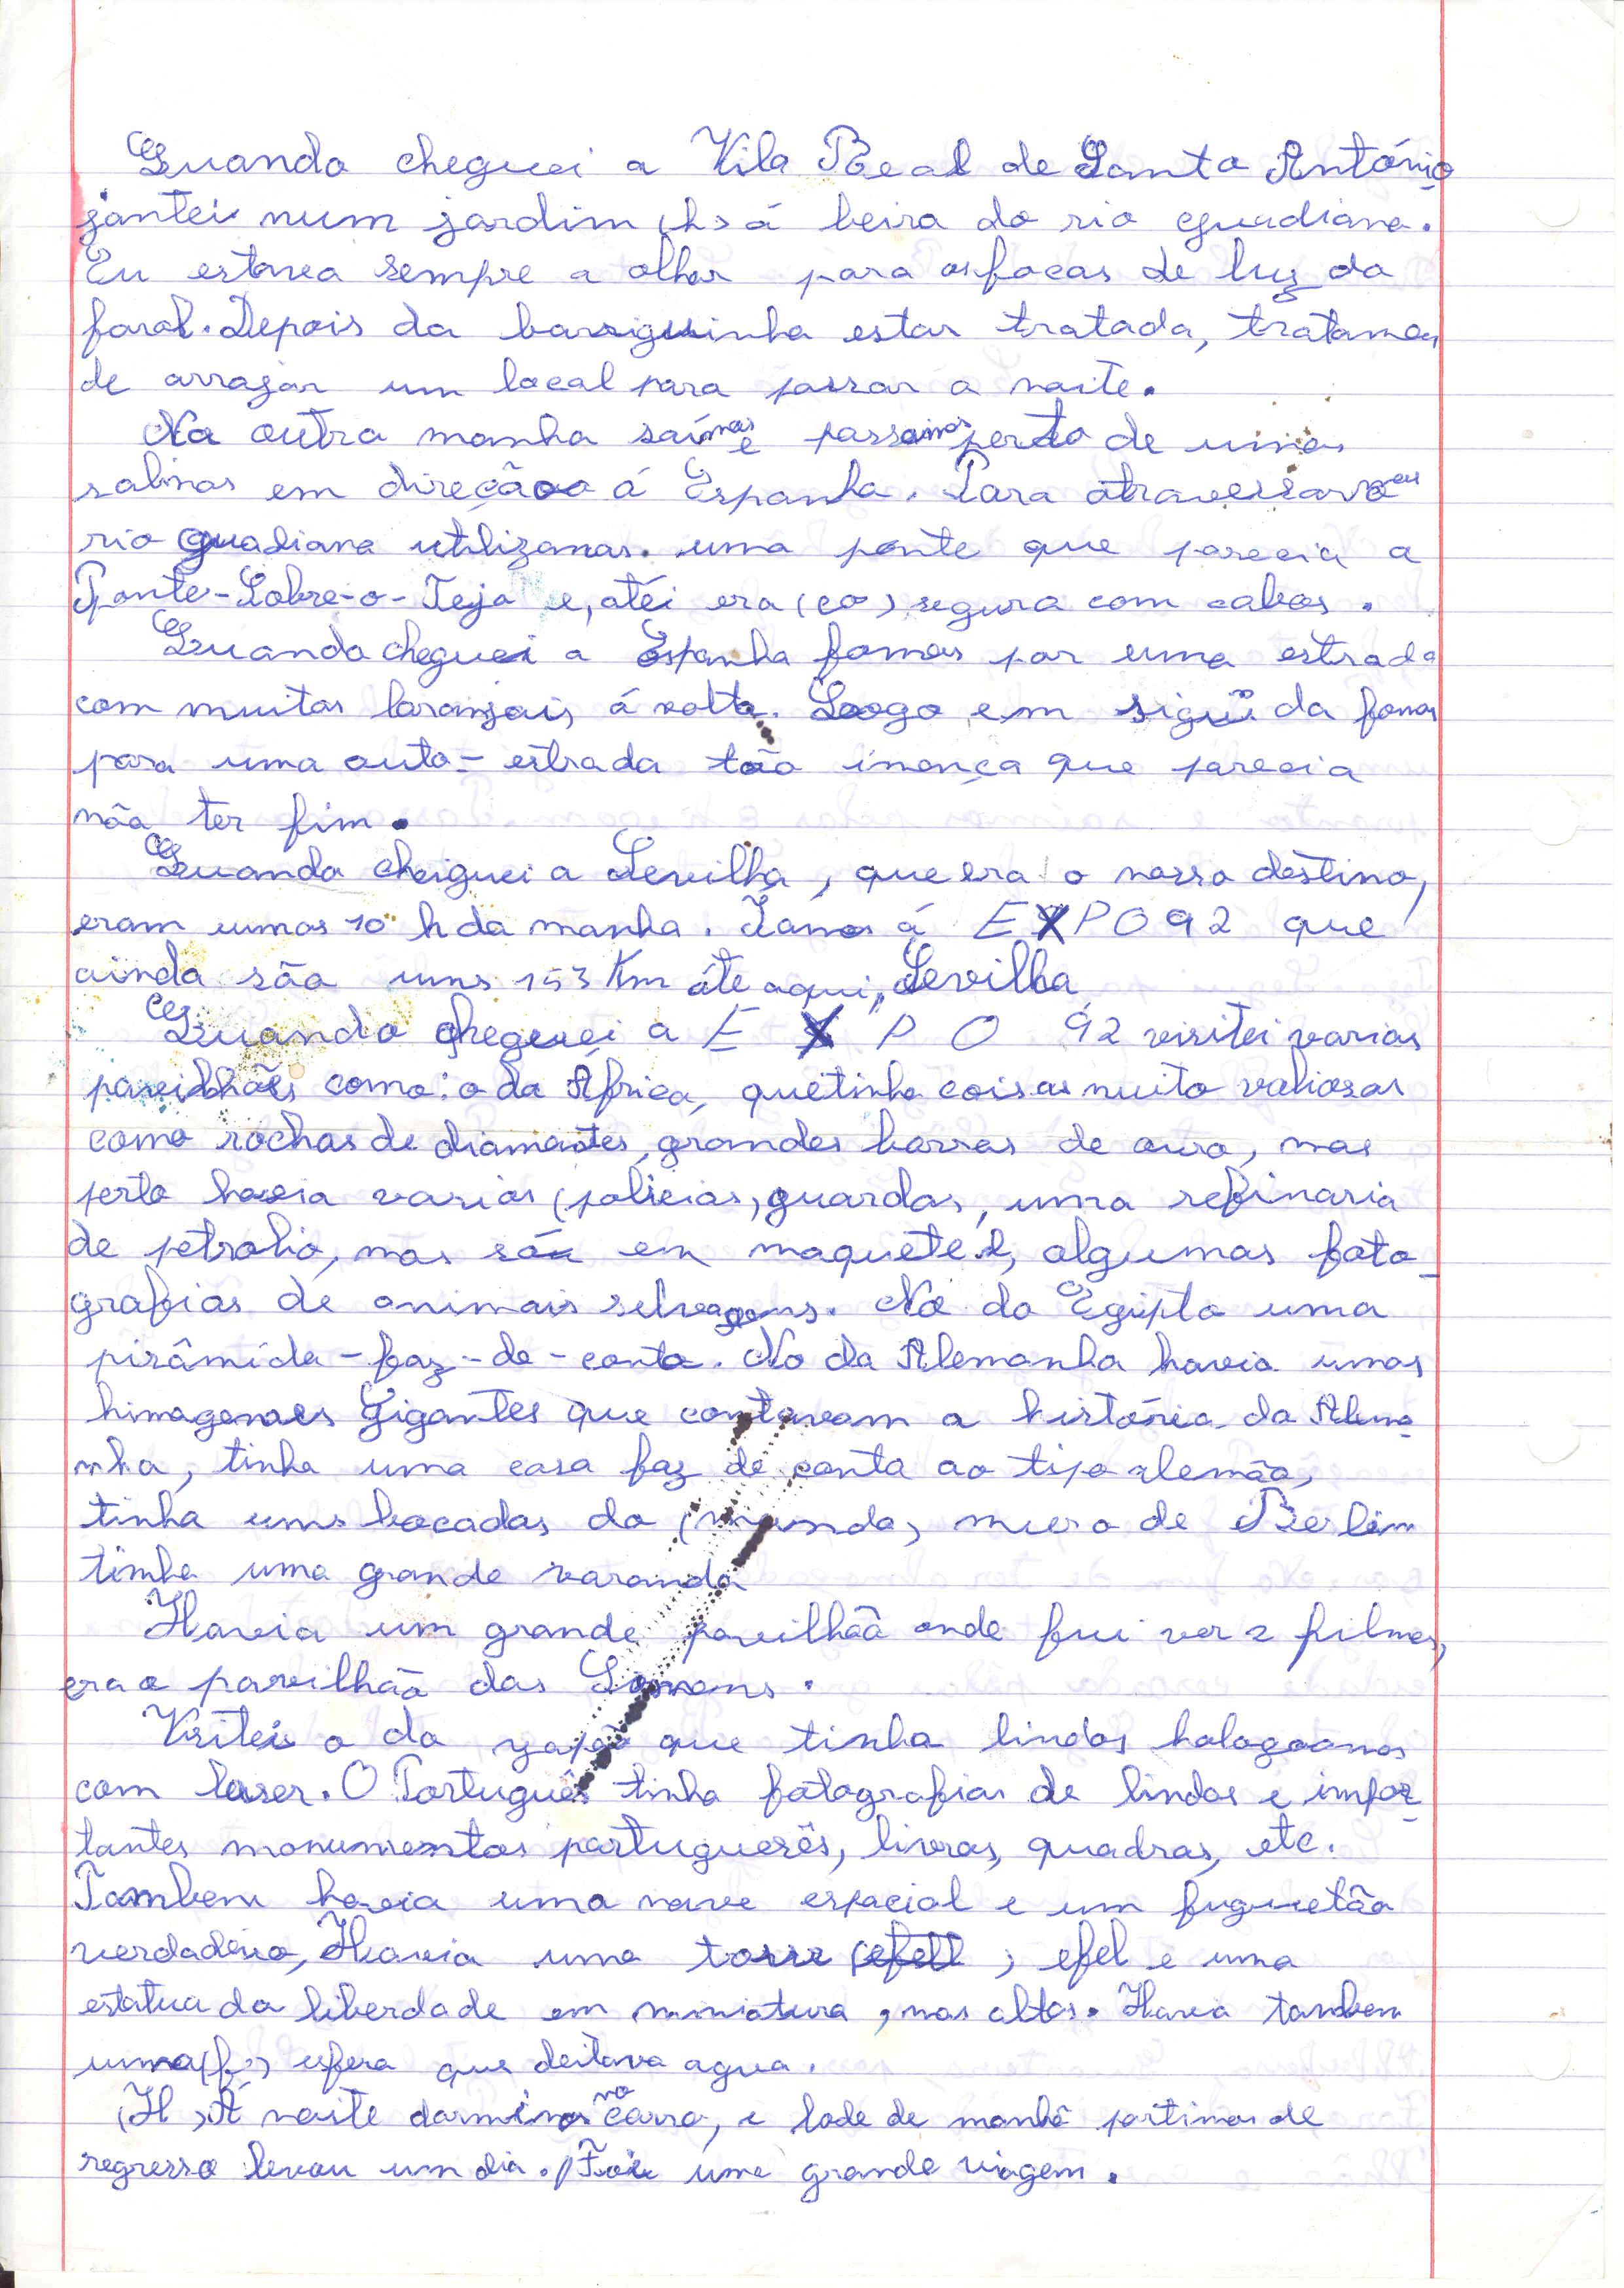 Quando cheguei a Vila Real de Santo António
jantei num jardim (h) á beira do rio guadiana.
Eu estava sempre a olhar para os focos de luz do
farol. Depois da barriguinha estar tratada, tratamos
de arrajar um local para passar a noite.
Na outra manha saímos e passamos perto de umas
salinas em direção á Espanha. Para atravessarmos
rio guadiana utilizamos. uma ponte que parecia a
Ponte-Sobre-o-Tejo e, atéi era (co) segura com cabos.
Quando cheguei a Espanha fomos por uma estrada
com muitos laranjais á volta. Logo em siguida fomos
para uma auto-estrada tão imença que parecia
não ter fim.
Quando cheiguei a Sevilha, que era o nosso destino,
eram umas 10 h da manha. Íamos á EXPO 92 que
ainda são uns 153 Km áte aqui, Sevilha
Quando cheguei a E X P O 92 visitei varios
pavilhões como: o da África, que tinha coisas muito valiosas
como rochas de diamantes, grandes barras de ouro, mas
perto havia varios (policias) guardas, uma refinaria
de petrolio, mas só em maquete, algumas foto-
grafias de animais selvagens. No do Egipto uma
pirâmida-faz-de-conta. No da Alemanha havia umas
himagens gigantes que contavam a história da Alema-
nha, tinha uma casa faz de conta ao tipo alemão,
tinha uns bocados do (mundo) muro de Berlim
tinha uma grande varanda
Havia um grande pavilhão onde fui ver 2 filmes,
era o pavilhão das
Visitei o do que tinha lindos hologramas
com laser. O Português tinha fotografias de lindos e impor-
tantes monumentos portuguesês, livros, quadros, etc.
Tambem havia uma nave espacial e um fuguetão
verdadeiro, Havia uma torre (efell) efel e uma
estatua da liberdade em miniatura, mas altos. Havia tambem
uma (f) esfera que deitava agua.
(H) Á noite dormimos no carro, e lode de manhã partimos de
regresso levou um dia. Foi uma grande viagem.